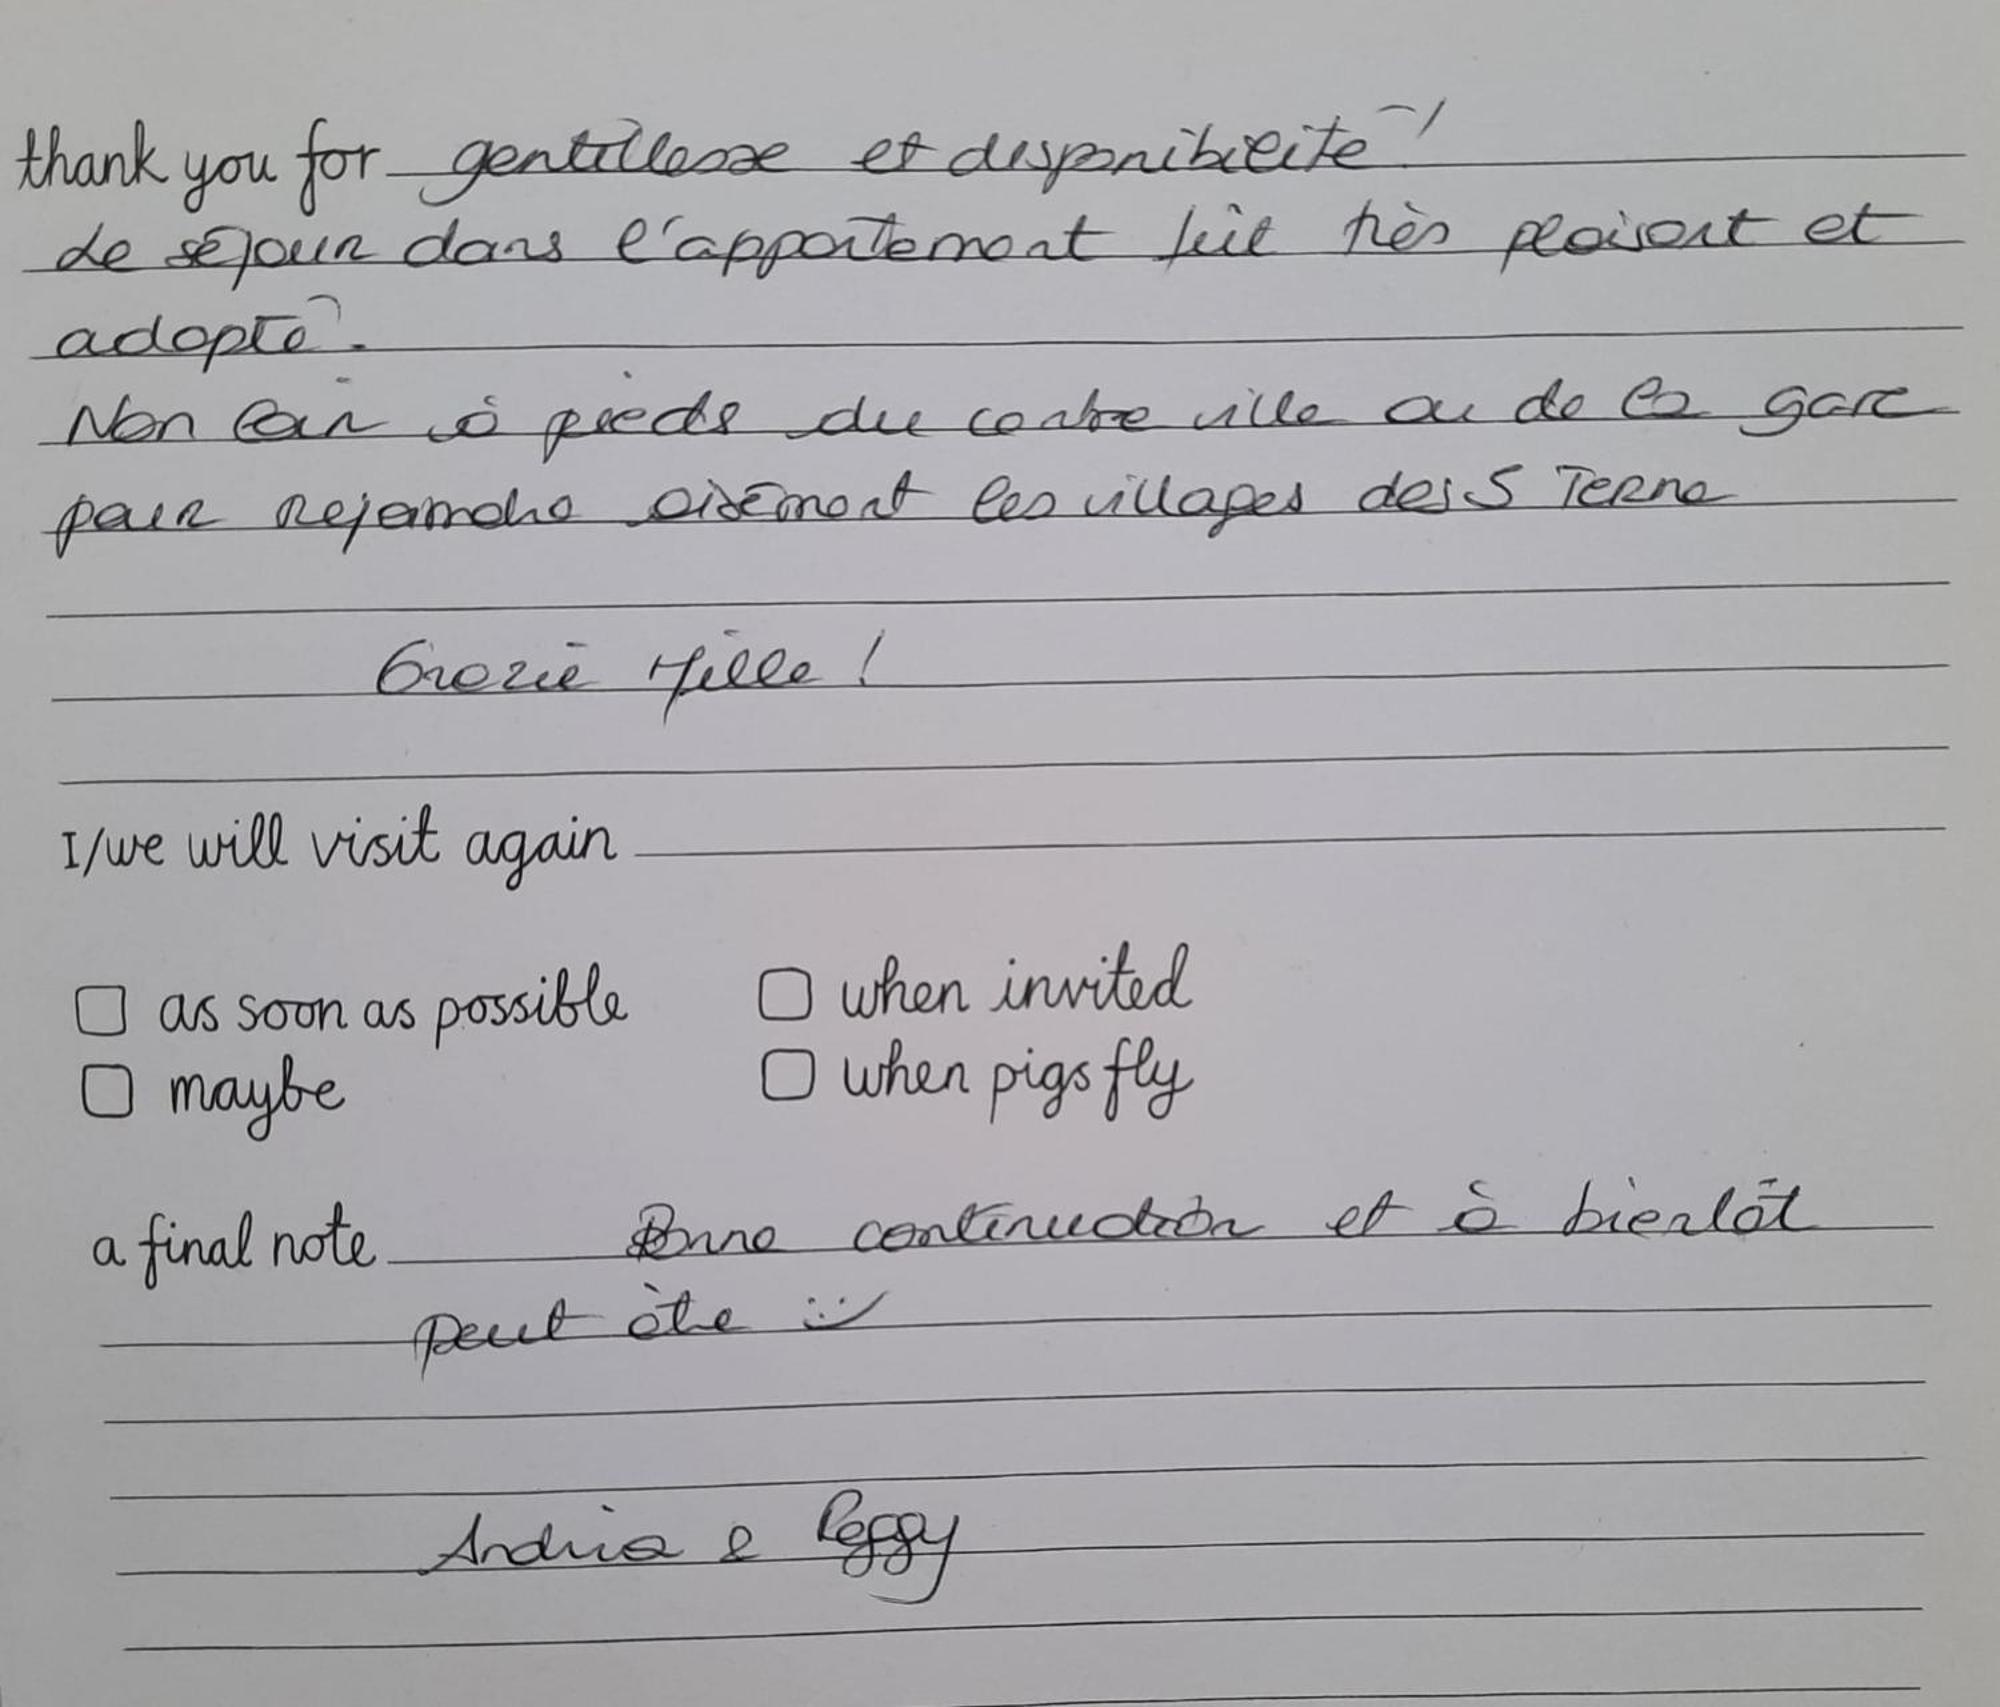 thank you for gentillesse et disponibilité !
Le séjour dans l'appartement fût très plaisant et
adapté.
Non loin à pieds du centre ville ou de la gare
pour rejoindre aisément les villages des 5 Terre
Grazie Mille !
I/we will visit again
as soon as possible when invited
maybe when pigs fly
a final note Bonne continuation et à bientôt
peut être :)
Andria & Peggy